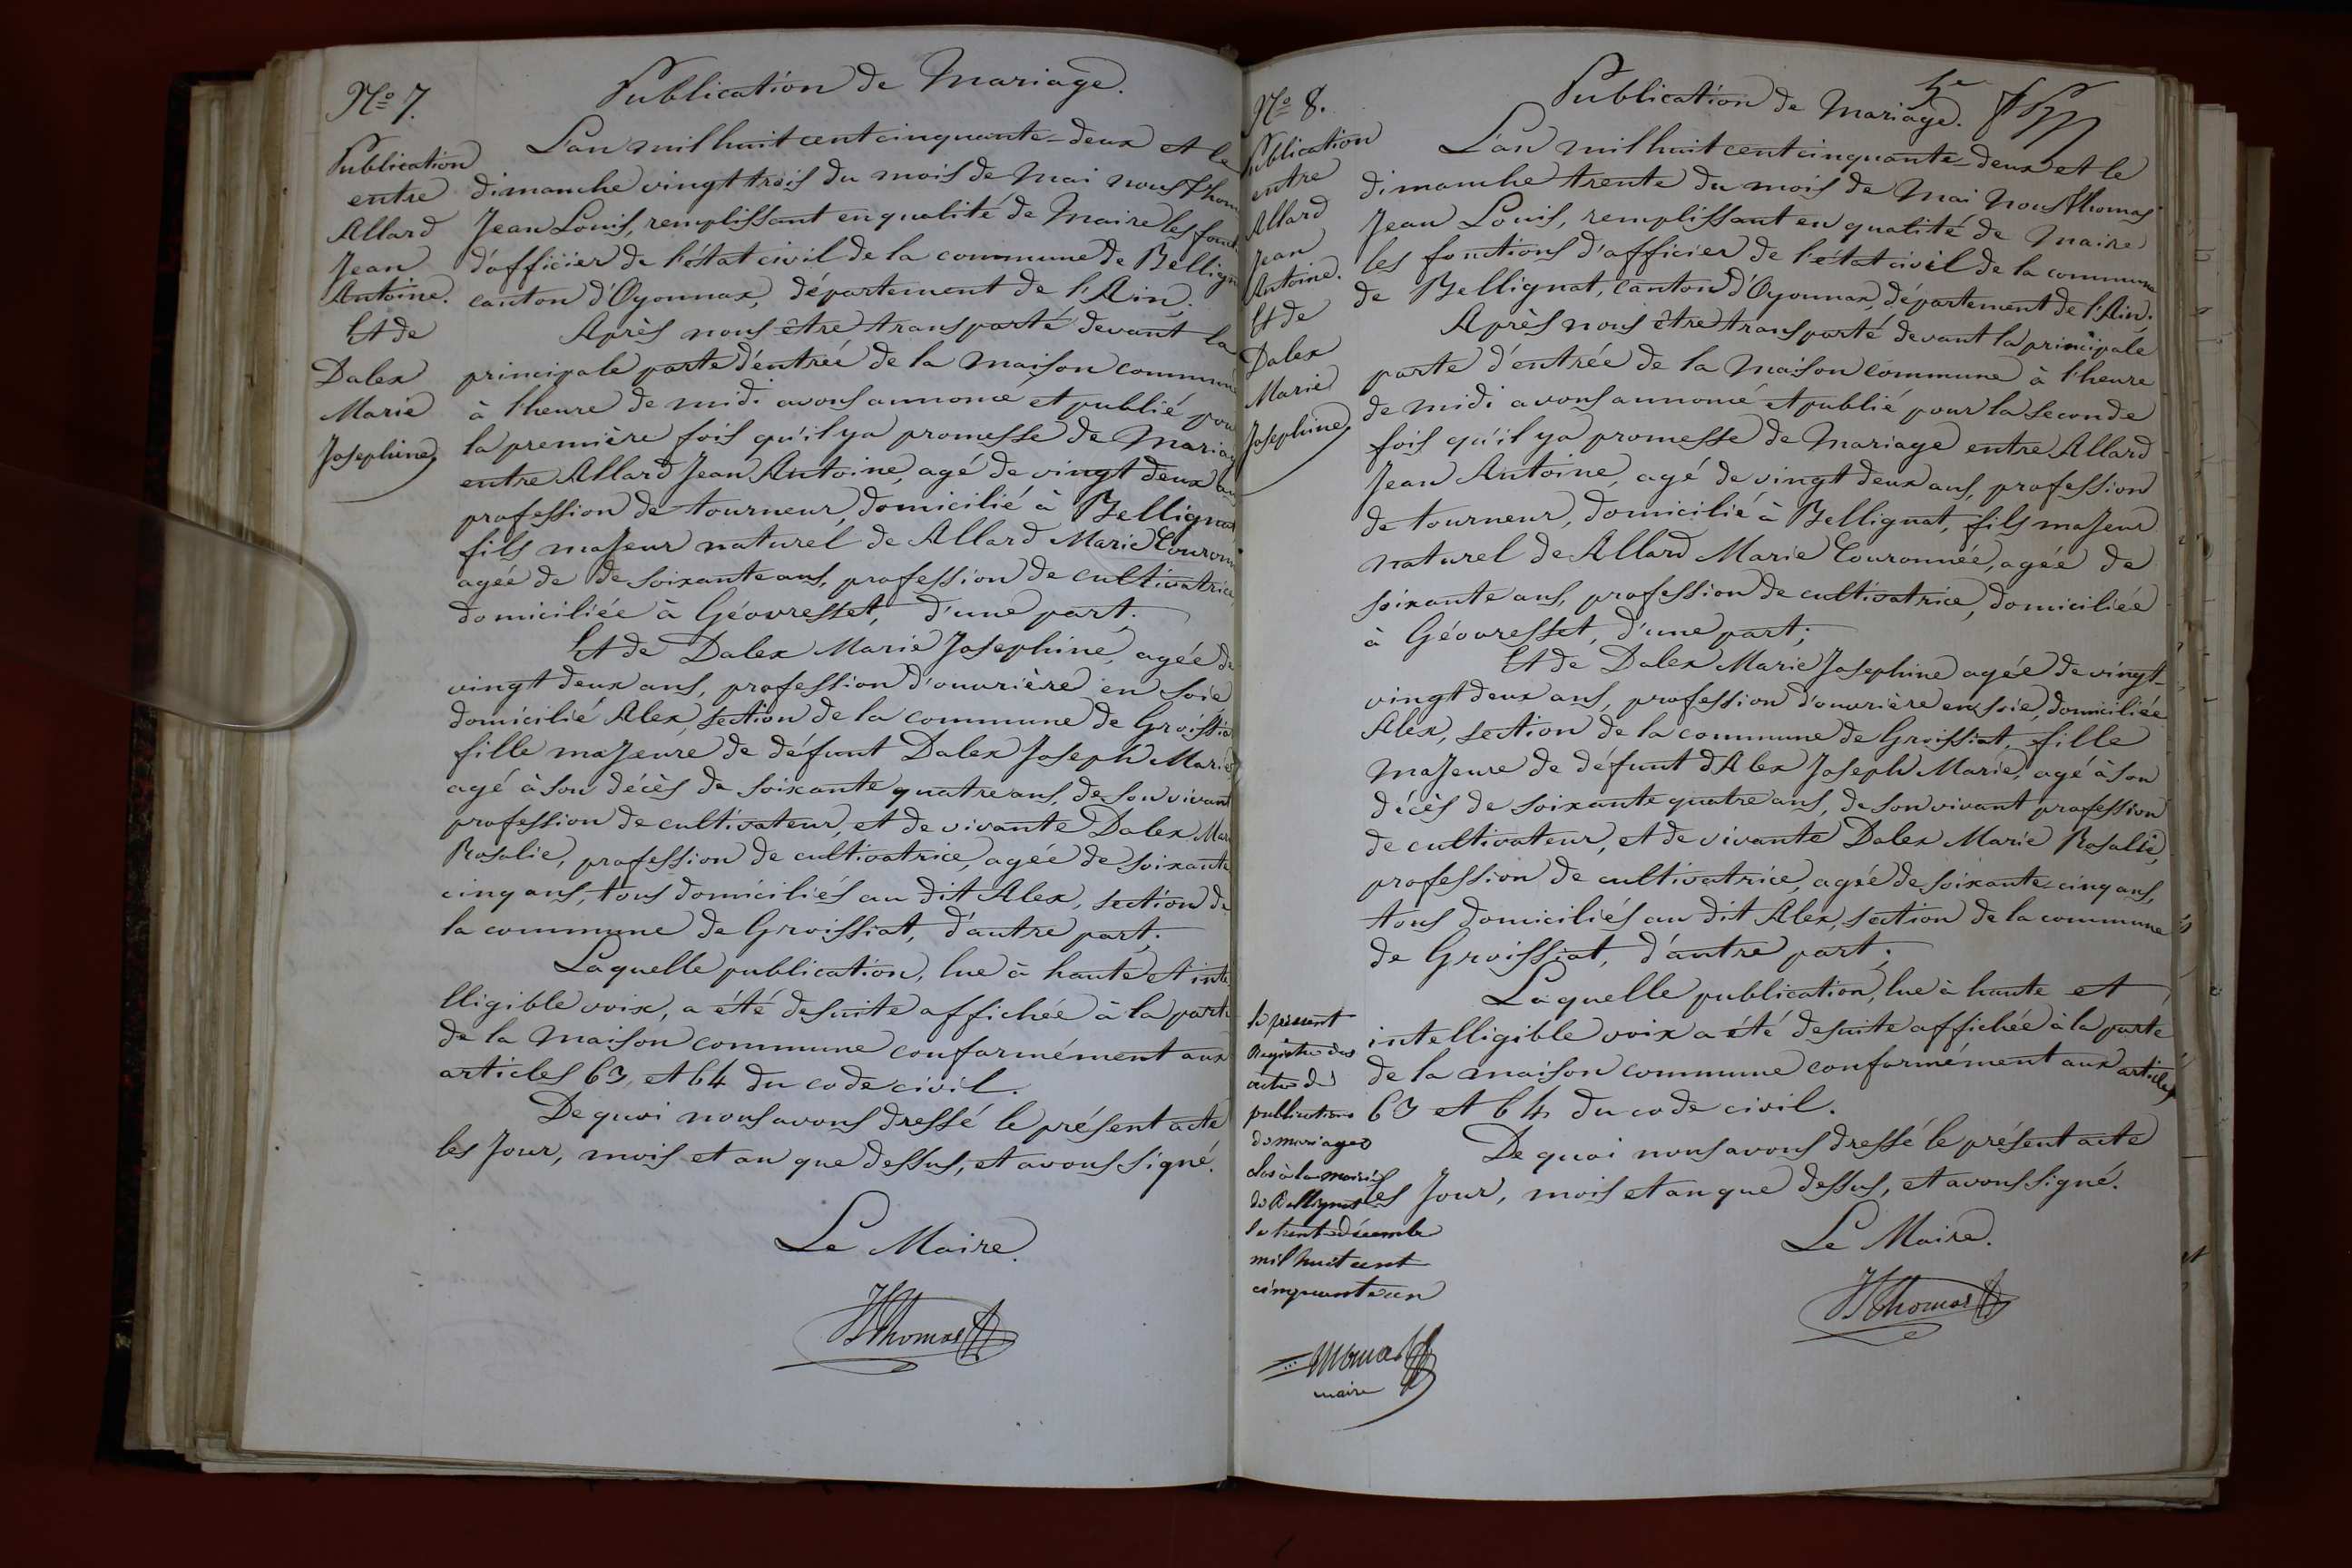 Nº 7.
Publication de Mariage.
Publication
entre
Allard
Jean
Antoine.
Et de
Dalex
Marie
Josephine
L'an mil huit cent cinquante-deux et le
dimanche vingt trois du mois de Mai nous Thom
Jean Louis, remplissant en qualité de Maire les fonct
d'officier de l'état civil de la commune de Bellign
canton d'Oyonnax, département de l'Ain.
Après nous être transporté devant la
principale porte d'entrée de la maison commune
à l'heure de midi avons annoncé et publié pou
la première fois qu'il y a promesse de Mariag
entre Allard Jean Antoine, agé de vingt deux an
profession de tourneur, domicilié à Bellignat,
fils majeur naturel de Allard Marie Couronn
agée de de soixante ans, profession de cultivatrice,
domiciliée à Géovresset, d'une part;
Et de Dalex Marie Josephine, agée de
vingt deux ans, profession d'ouvrière en soie
domicilié Alex, section de la commune de Groissia
fille majeure de défunt Dalex Joseph Marie
agé à son décès de soixante quatre ans, de son vivant
profession de cultivateur, et de vivante Dalex Mari
Rosalie, profession de cultivatrice, agée de soixante
cinq ans, tous domiciliés au dit Alex, section de
la commune de Groissiat, d'autre part;
Laquelle publication, lue à haute et inte
lligible voix, a été desuite affichée à la porte
de la maison commune conformément aux
articles 63 et 64 du code civil.
De quoi nous avons dressé le présent acte
les jour, mois et an que dessus, et avons signé.
Le Maire.
JLThomas
Nº 8.
Publication de Mariage.
Publication
entre
Allard
Jean
Antoine.
Et de
Dalex
Marie
Josephine
L'an mil huit cent cinquante deux et le
dimanche trente du mois de Mai nous Thomas
Jean Louis, remplissant en qualité de Maire
les fonctions d'officier de l'état civil de la commune
de Bellignat, canton d'Oyonnax, département de l'Ain.
Après nous être transporté devant la principale
porte d'entrée de la maison commune à l'heure
de midi avons annoncé et publié pour la seconde
fois qu'il y a promesse de Mariage entre Allard
Jean Antoine, agé de vingt deux ans, profession
de tourneur, domicilié à Bellignat, fils majeur
naturel de Allard Marie Couronnée, agée de
soixante ans, profession de cultivatrice, domiciliée
à Géovresset, d'une part;
Et de Dalex Marie Josephine agée de vingt-
vingt deux ans, profession d'ouvrière en soie, domiciliée
Alex, section de la commune de Groissiat, fille
majeure de défunt dAlex Joseph Marie, agé à son
décès de soixante quatre ans, de son vivant profession
de cultivateur, et de vivante Dalex Marie Rosalie,
profession de cultivatrice, agée de soixante cinq ans,
tous domiciliés au dit Alex, section de la commune
de Groissiat, d'autre part;
Laquelle publication, lue à haute et
intelligible voix a été desuite affichée à la porte
de la maison commune conformément aux articles
63 et 64 du code civil.
De quoi nous avons dressé le présent acte
les jour, mois et an que dessus, et avons signé.
Le Maire.
JLThomas
le présent
Registre des
actes de
publications
de mariages
clos à la mairie
de Bellignat
le trente décembre
mil huit cent
cinquante un
Thomas
maire